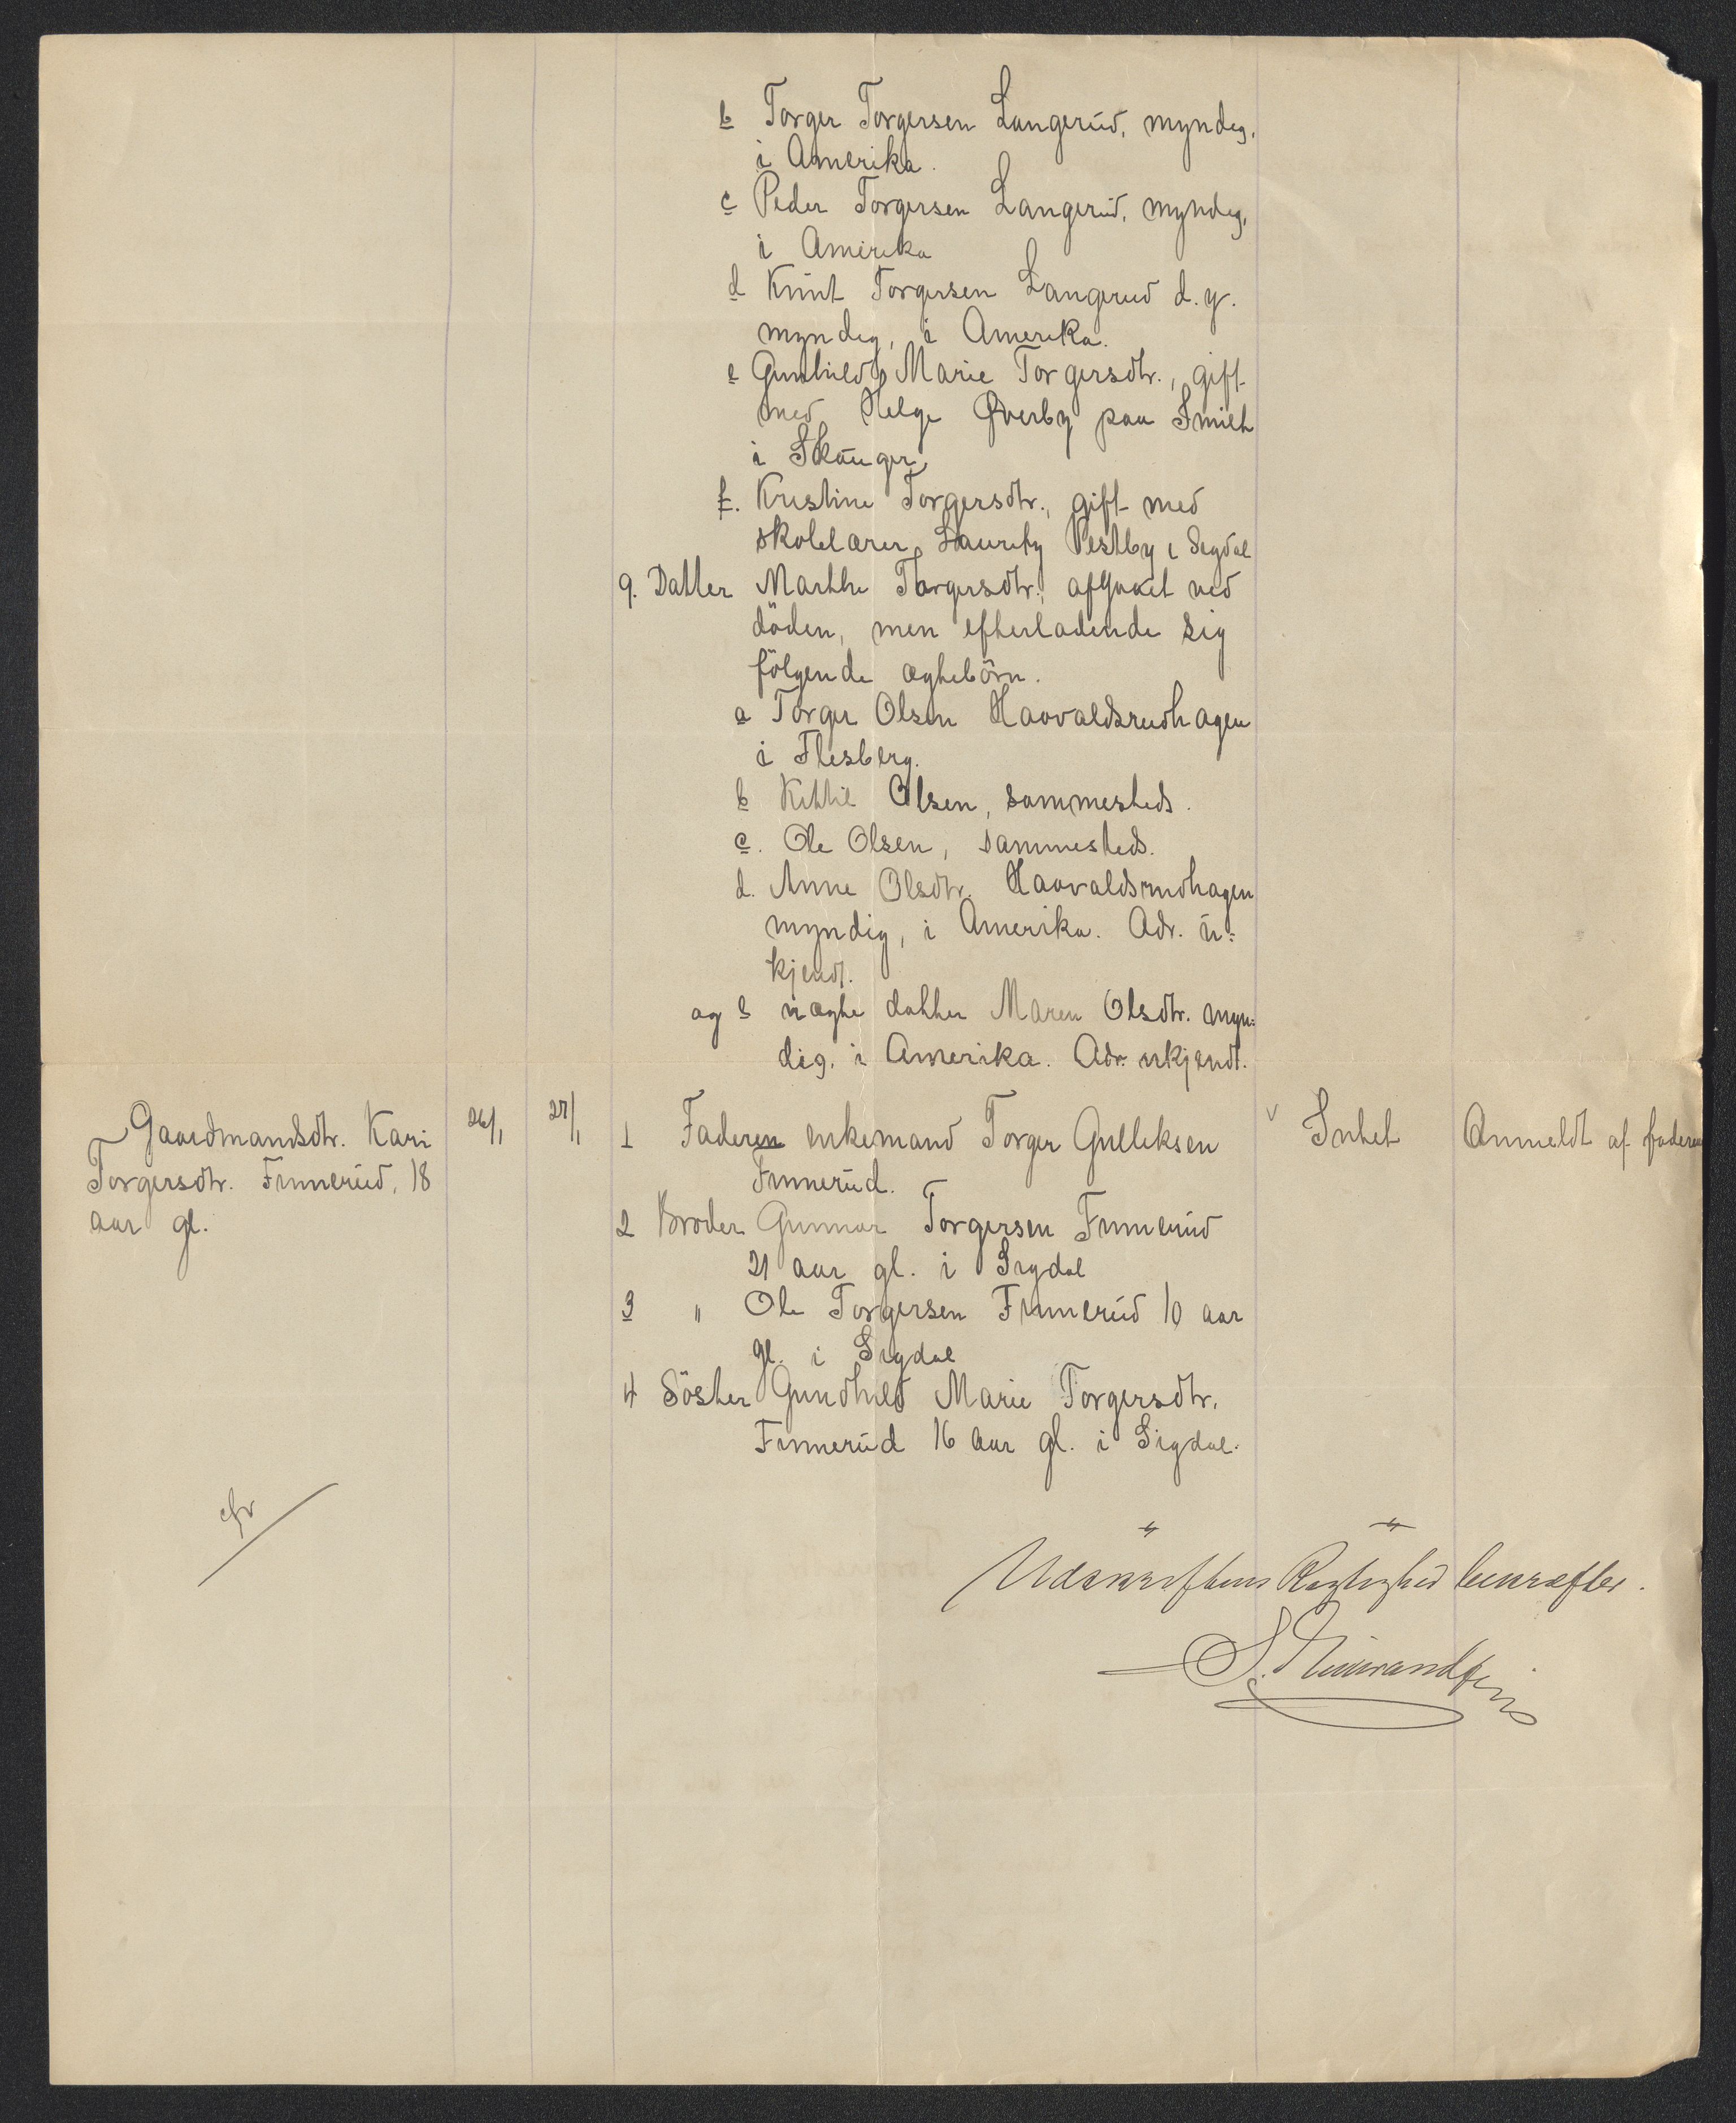 b Torger Torgersen Langerud, myndig,
i Amerika.
c Peder Torgersen Langerud, myndig,
i Amerika
d Knut Torgersen Langerud d.y.
myndig, i Amerika.
e Gunhild Marie Torgersdtr., gift
med Helge Överby paa
i Skauger
f. Kristine Torgersdtr., gift med
skolelærer Lauritz Vestby i Sigdal
9. Datter Marthe Torgersdtr., afgaaet ved
döden, men efterladende sig
fölgende ægtebörn.
a Torger Olsen Haavaldsrudhagen
i Flesberg.
b Kittil Olsen, sammesteds.
c. Ole Olsen, sammesteds.
d. Anne Olsdtr. Haavaldsrudhagen
myndig, i Amerika. Adr. u=
kjendt.
og e uægte datter Maren Olsdtr. myn=
dig, i Amerika. Adr. ukjendt.
Gaardmandsdtr. Kari 26/1 27/1 1 Faderen enkemand Torger Gulliksen v Intet Anmeldt af faderen
Torgersdtr. Finnerud, 18 Finnerud.
aar gl. 2 Broder Gunnar Torgersen Finnerud
21 aar gl. i Sigdal
3 " Ole Torgersen Finnerud 10 aar
gl. i Sigdal
4 Söster Gundhild Marie Torgersdtr.
Finnerud 16 aar gl. i Sigdal.
cfr
Udskriftens Rigtighed bekræftes.